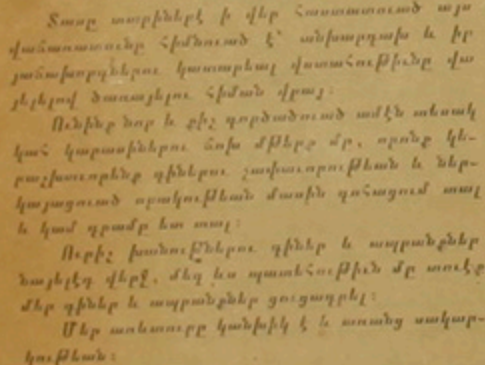 Տասը տարիներէ ի վեր Հաստատուած այս
վաճառատունը Հիմնուած է՝ անխարդախ և իր
յաճախորդներու կատարեալ վստահութիւնը վա
յելելով ծառայելու Հիման վրայ։
Ունինք նոր և քիչ գործածուած ամէն տեսակ
կահ կարասիներու ճոխ մթերք մը, որոնք կե-
րաշխաւորենք գիներու չափաւորութեան և ներ-
կայացուած որակութեան մասին գոհացում տալ
և կամ դրամը ետ տալ։
Ուրիշ խանութներու գիներ և ապրանքներ
նայելէդ վերջ, մեզ ևս պատեհութիւն մը տուէք
մեր գիներ և ապրանքներ ցուցադրել։
Մեր առևտուրը կանխիկ է և առանց սակար-
կութեան։